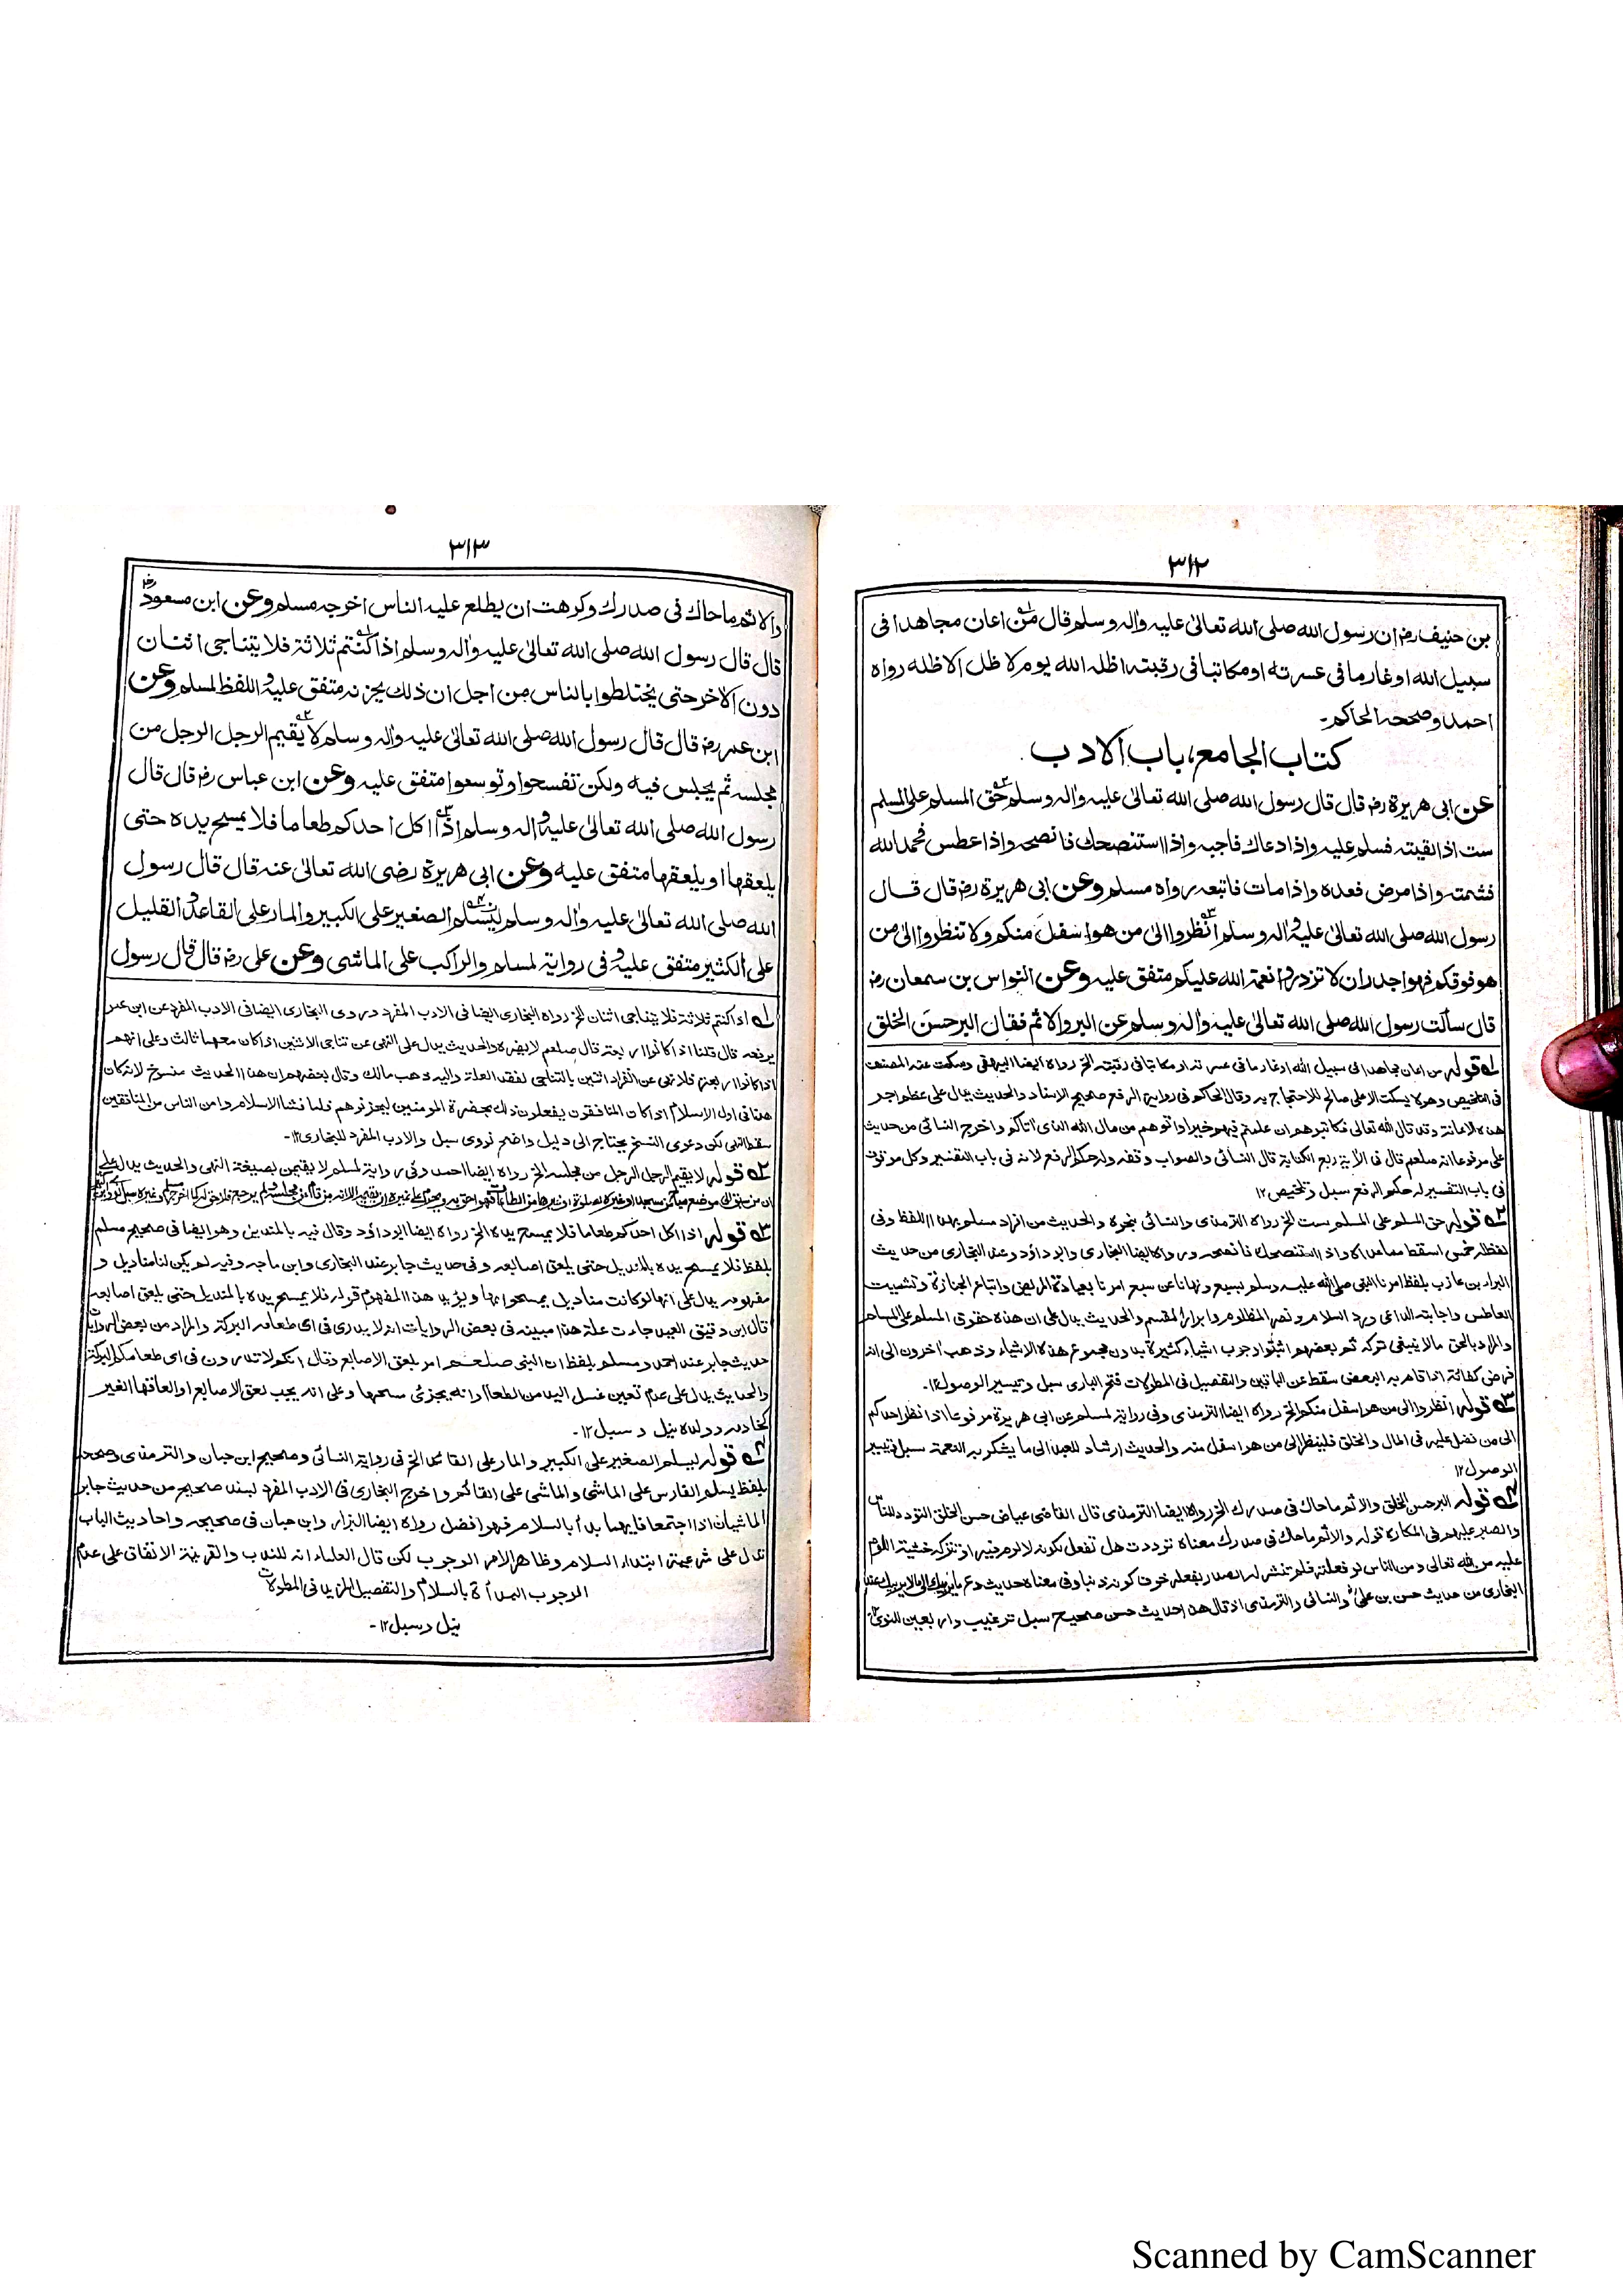 ٣١٢
بن حنيف رض ان رسول الله صلى الله تعالىٰ عليه واٰله وسلم قال من اعان مجاهدا فى
سبيل الله او غارما فى عسرته او مكاتبا فى رقبته اظله الله يوم لا ظل الا ظله رواه
احمد وصححه الحاكم۔
كتاب الجامع، باب الادب
عن ابى هريرة رض قال قال رسول الله صلى الله تعالىٰ عليه واٰله وسلم حق المسلم على المسلم
ست اذا لقيته فسلم عليه واذا دعاك فاجبه واذا استنصحك فانصحه واذا عطس فحمد الله
فشمته واذا مرض فعده واذا مات فاتبعه رواه مسلم وعن ابى هريرة رض قال قال
رسول الله صلى الله تعالىٰ عليه واٰله وسلم انظروا الىٰ من هو اسفل منكم ولا تنظروا الىٰ من
هو فوقكم فهو اجدر ان لا تزدروا نعمة الله عليكم متفق عليه وعن النواس بن سمعان رض
قال سألت رسول الله صلى الله تعالىٰ عليه واٰله وسلم عن البر والاثم فقال البر حسن الخلق
١ قوله من اعان مجاهدا فى سبيل الله او غارما فى عسرته او مكاتبا فى رقبته الخ رواه ايضا البيهقى وسكت عنه المصنف
فى التلخيص وهو لا يسكت الا على صالح للاحتجاج به وقال الحاكم فى رواية الرفع صحيح الاسناد والحديث يدل على عظم اجر
هذه الاعانة وقد قال الله تعالى فكاتبوهم ان علمتم فيهم خيرا واتوهم من مال الله الذى اتاكم واخرج النسائى من حديث
على مرفوعا انه صلعم قال فى الأية ربع الكتابة قال النسائى والصواب وقفه وله حكم الرفع لانه فى باب التفسير وكل موقوف
فى باب التفسير له حكم الرفع سبل وتلخيص ١٢
٢ قوله حق المسلم على المسلم ست الخ رواه الترمذى والنسائى بنحوه والحديث من افراد مسلم بهذا اللفظ وفى
لفظ له خمس اسقط مما عده واذا استنصحك فانصحه ورواه ايضا البخارى وابو داؤد وعند البخارى من حديث
البراء بن عازب بلفظ امرنا النبى صلى الله عليه وسلم بسبع ونهانا عن سبع امرنا بعيادة المريض واتباع الجنازة وتشميت
العاطس واجابة الداعى ورد السلام ونصر المظلوم وابرار المقسم والحديث يدل على ان هذه حقوق المسلم على المسلم
والمراد بالحق مالا ينبغى تركه ثم بعضهم اثبتوا وجوب اشياء كثيرة بدون مجموع هذه الاشياء وذهب اٰخرون الى انه
فرض كفاية اذا قام به البعض سقط عن الباقين والتفصيل فى المطولات فتح البارى سبل وتيسير الوصول ١٢۔
٣ قوله انظروا الى من هو اسفل منكم الخ رواه ايضا الترمذى وفى رواية لمسلم عن ابى هريرة مرفوعا اذا نظر احدكم
الى من فضل عليه فى المال والخلق فلينظر الى من هو اسفل منه والحديث ارشاد للعبد الى ما يشكر به النعمة سبل تيسير
الوصول ١٢
٤ قوله البر حسن الخلق والاثم ما حاك فى صدرك الخ رواه ايضا الترمذى قال القاضى عياض حسن الخلق التودد للناس
والصبر عليهم فى المكاره قوله والاثم ما حاك فى صدرك معناه ترددت هل تفعل لكونه لا لوم فيه او تتركه خشية اللوم
عليه من الله تعالى ومن الناس لو فعلته فلم تنشرح له الصدر بفعله خوف كونه ذنبا وفى معناه حديث دع ما يريبك الى ما لا يريبك عند
البخارى من حديث حسن بن على والنسائى والترمذى اذ قال هذا حديث حسن صحيح سبل ترغيب واربعين للنووى
٣١٣
والاثم ما حاك فى صدرك وكرهت ان يطلع عليه الناس اخرجه مسلم وعن ابن مسعود رض
قال قال رسول الله صلى الله تعالىٰ عليه واٰله وسلم اذا كنتم ثلاثة فلا يتناجى اثنان
دون الاٰخر حتى يختلطوا بالناس من اجل ان ذلك يحزنه متفق عليه واللفظ لمسلم وعن
ابن عمر رض قال قال رسول الله صلى الله تعالىٰ عليه واٰله وسلم لا يقيم الرجل الرجل من
مجلسه ثم يجلس فيه ولكن تفسحوا وتوسعوا متفق عليه وعن ابن عباس رض قال قال
رسول الله صلى الله تعالىٰ عليه واٰله وسلم اذا اكل احدكم طعاما فلا يمسح يده حتى
يلعقها او يلعقها متفق عليه وعن ابى هريرة رضى الله تعالىٰ عنه قال قال رسول
الله صلى الله تعالىٰ عليه واٰله وسلم ليسلم الصغير على الكبير والمار على القاعد والقليل
على الكثير متفق عليه وفى رواية لمسلم والراكب على الماشى وعن على رض قال قال رسول
١ اذا كنتم ثلاثة فلا يتناجى اثنان الخ رواه البخارى ايضا فى الادب المفرد وروى البخارى ايضا فى الادب المفرد عن ابن عمر
يرفعه قال قلنا اذا كانوا اربعة قال صلعم لا يضره والحديث يدل على النهى عن تناجى الاثنين اذا كان معهما ثالث وعلى انهم
اذا كانوا اربعة فلا نهى عن انفراد اثنين بالتناجى لفقد العلة واليه ذهب مالك وقال بعضهم ان هذا الحديث منسوخ لانه كان
هذا فى اول الاسلام اذ كان المنافقون يفعلون ذلك بحضرة المومنين ليحزنوهم فلما فشا الاسلام وامن الناس من المنافقين
سقط النهى لكن دعوى النسخ يحتاج الى دليل واضح نووى سبل والادب المفرد للبخارى ١٢۔
٢ قوله لا يقيم الرجل الرجل من مجلسه الخ رواه ايضا احمد وفى رواية لمسلم لا يقيمن بصيغة النهى والحديث يدل على
٣ قوله اذا اكل احدكم طعاما فلا يمسح يده الخ رواه ايضا ابو داؤد وقال فيه بالمنديل وهو ايضا فى صحيح مسلم
بلفظ فلا يمسح يده بالمنديل حتى يلعق اصابعه وفى حديث جابر عند البخارى وابن ماجه وفيه لم يكن لنا مناديل و
مفهومه يدل على انها لو كانت مناديل يمسحوا بها ويؤيد هذا المفهوم قوله فلا يمسح يده بالمنديل حتى يلعق اصابعه
قال ابن دقيق العيد جاءت علة هذا مبينة فى بعض الروايات انه لا يدرى فى اى طعامه البركة والمراد من بعض الروايات
حديث جابر عند احمد ومسلم بلفظ ان النبى صلعم امر بلعق الاصابع وقال انكم لا تدرون فى اى طعامكم البركة
والحديث يدل على عدم تعيين غسل اليد من الطعام وانه يجزئ مسحها وعلى انه يجب لعق الاصابع او العاقها الغير
كخادمه وولده نيل وسبل ١٢۔
٤ قوله ليسلم الصغير على الكبير والمار على القاعد الخ فى رواية النسائى وصحيح ابن حبان والترمذى وصححه
بلفظ يسلم الفارس على الماشى والماشى على القائم واخرج البخارى فى الادب المفرد بسند صحيح من حديث جابر
الماشيان اذا اجتمعا فايهما بدأ بالسلام فهو افضل رواه ايضا البزار وابن حبان فى صحيحه واحاديث الباب
تدل على شرعية ابتداء السلام وظاهر الامر الوجوب لكن قال العلماء انه للندب والقرينة الاتفاق على عدم
الوجوب البدأة بالسلام والتفصيل المزيد فى المطولات
نيل وسبل ١٢۔
Scanned by CamScanner